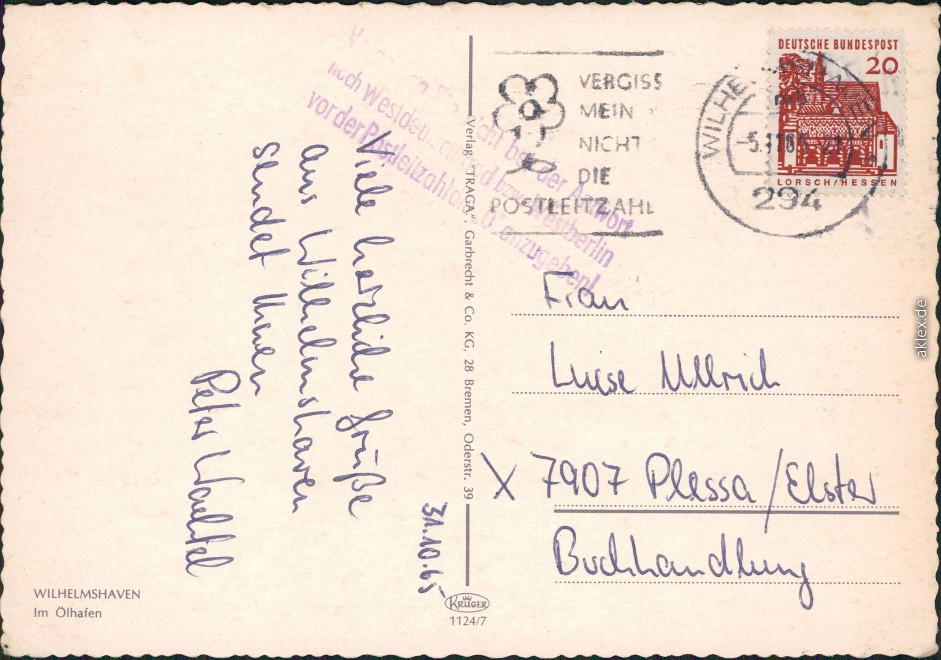 Viele herzliche Grüße
aus Wilhelmshaven
sendet Ihnen
Peter Wachtel
31.10.65
WILHELMSHAVEN
Im Ölhafen
Verlag "TRAGA", Garbrecht & Co. KG, 28 Bremen, Oderstr. 39
KRÜGER
1124/7
nicht bei der Antwort
nach Westdeutschland bzw. Westberlin
vor der Postleitzahl anzugeben!
VERGISS
MEIN
NICHT
DIE
POSTLEITZAHL
WILHE
-5.11.65
294
DEUTSCHE BUNDESPOST
20
LORSCH/HESSEN
Frau
Luise Ullrich
X 7907 Plessa/Elster
Buchhandlung
aklex.de